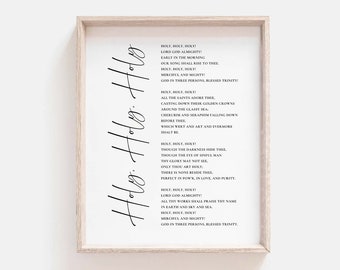 Holy, Holy, Holy
HOLY, HOLY, HOLY!
LORD GOD ALMIGHTY!
EARLY IN THE MORNING
OUR SONG SHALL RISE TO THEE.
HOLY, HOLY, HOLY!
MERCIFUL AND MIGHTY!
GOD IN THREE PERSONS, BLESSED TRINITY!
HOLY, HOLY, HOLY!
ALL THE SAINTS ADORE THEE,
CASTING DOWN THEIR GOLDEN CROWNS
AROUND THE GLASSY SEA,
CHERUBIM AND SERAPHIM FALLING DOWN
BEFORE THEE,
WHICH WERT AND ART AND EVERMORE
SHALT BE.
HOLY, HOLY, HOLY!
THOUGH THE DARKNESS HIDE THEE,
THOUGH THE EYE OF SINFUL MAN
THY GLORY MAY NOT SEE,
ONLY THOU ART HOLY;
THERE IS NONE BESIDE THEE,
PERFECT IN POWER, IN LOVE, AND PURITY.
HOLY, HOLY, HOLY!
LORD GOD ALMIGHTY!
ALL THY WORKS SHALL PRAISE THY NAME
IN EARTH AND SKY AND SEA.
HOLY, HOLY, HOLY!
MERCIFUL AND MIGHTY!
GOD IN THREE PERSONS, BLESSED TRINITY.